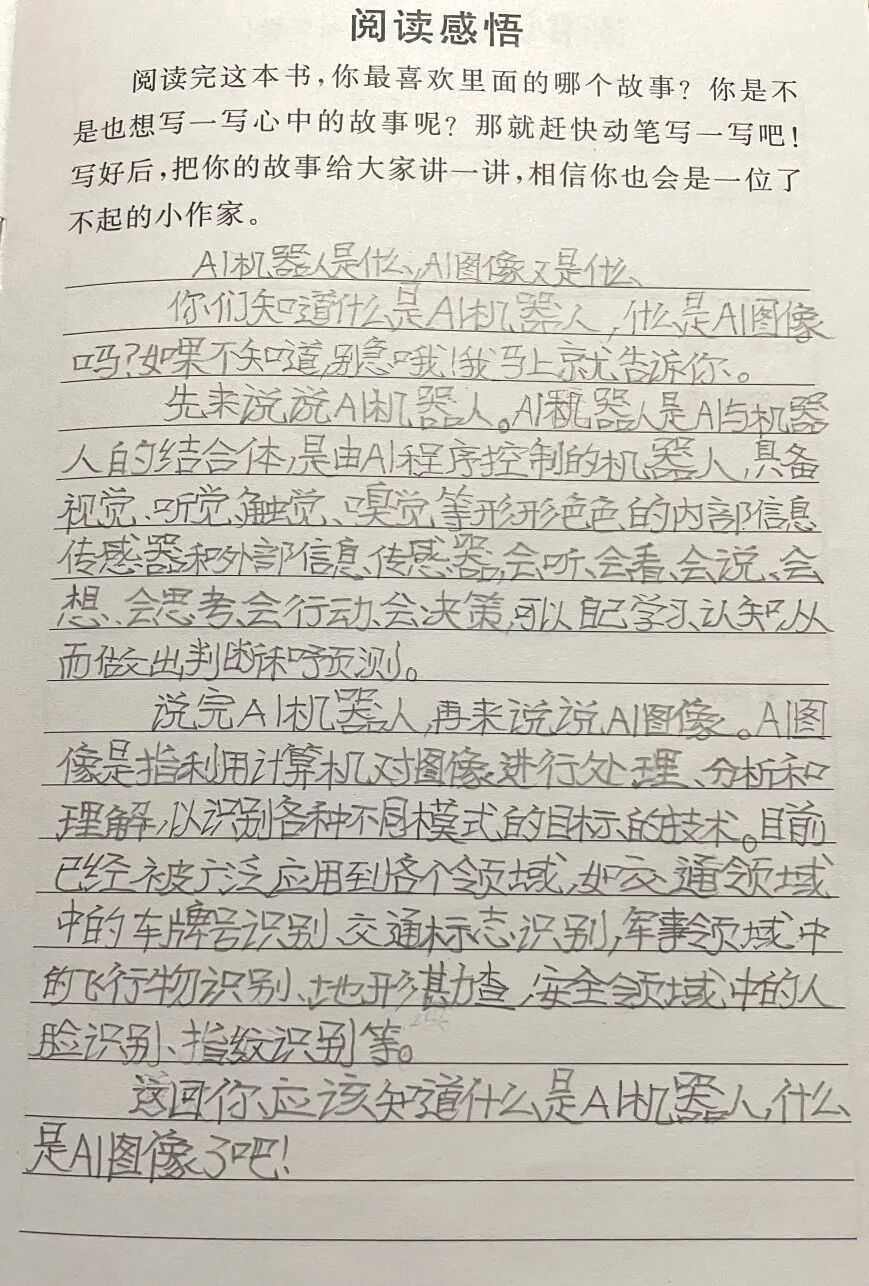 阅读感悟
阅读完这本书，你最喜欢里面的哪个故事？你是不
是也想写一写心中的故事呢？那就赶快动笔写一写吧！
写好后，把你的故事给大家讲一讲，相信你也会是一位了
不起的小作家。
AI机器人是什么，AI图像又是什么
你们知道什么是AI机器人，什么是AI图像
吗？如果不知道，别急哦！我马上就告诉你。
先来说说AI机器人。AI机器人是AI与机器
人的结合体，是由AI程序控制的机器人，具备
视觉、听觉、触觉、嗅觉等形形色色的内部信息
传感器和外部信息传感器，会听、会看、会说、会
想、会思考、会行动、会决策，可以自己学习、认知，从
而做出判断和预测。
说完AI机器人，再来说说AI图像。AI图
像是指利用计算机对图像进行处理、分析和
理解，以识别各种不同模式的目标的技术。目前
已经被广泛应用到各个领域，如交通领域
中的车牌号识别、交通标志识别，军事领域中
的飞行物识别、地形勘查，安全领域中的人
脸识别、指纹识别等。
这回你应该知道什么是AI机器人，什么
是AI图像了吧！